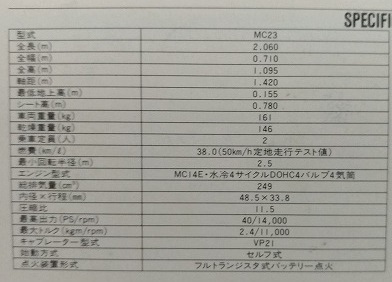 SPECIFI
型式 MC23
全長(m) 2.060
全幅(m) 0.710
全高(m) 1.095
軸距(m) 1.420
最低地上高(m) 0.155
シート高(m) 0.780
車両重量(kg) 161
乾燥重量(kg) 146
乗車定員(人) 2
燃費(km/ℓ) 38.0(50km/h定地走行テスト値)
最小回転半径(m) 2.5
エンジン型式 MC14E・水冷4サイクルDOHC4バルブ4気筒
総排気量(cm³) 249
内径×行程(㎜) 48.5×33.8
圧縮比 11.5
最高出力(PS/rpm) 40/14,000
最大トルク(kgm/rpm) 2.4/11,000
キャブレター型式 VP21
始動方式 セルフ式
点火装置形式 フルトランジスタ式バッテリー点火